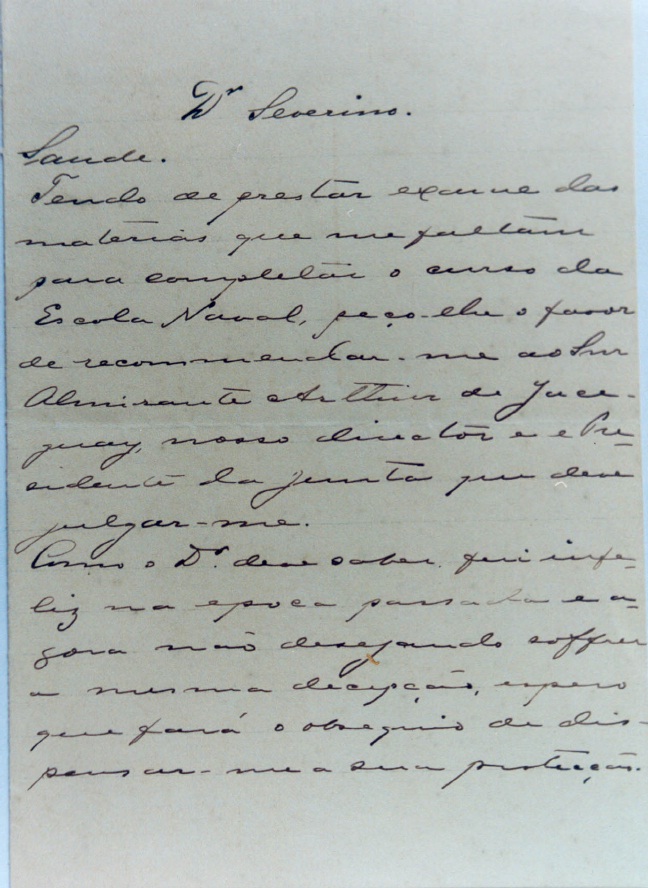 Dr Severino.
Saude.
Tendo de prestar exame das
materias que me faltam
para completar o curso da
Escola Naval, peço-lhe o favor
de recommendar-me ao Snr
Almirante Arthur de Jace-
guay, nosso director e e Pre-
sidente da junta que deve
julgar-me.
Como o Dr. deve saber fui infe-
liz na epoca passada e a-
gora não desejando soffrer
a mesma decepção, espero
que fará o obsequio de dis-
pensar-me a sua protecção.